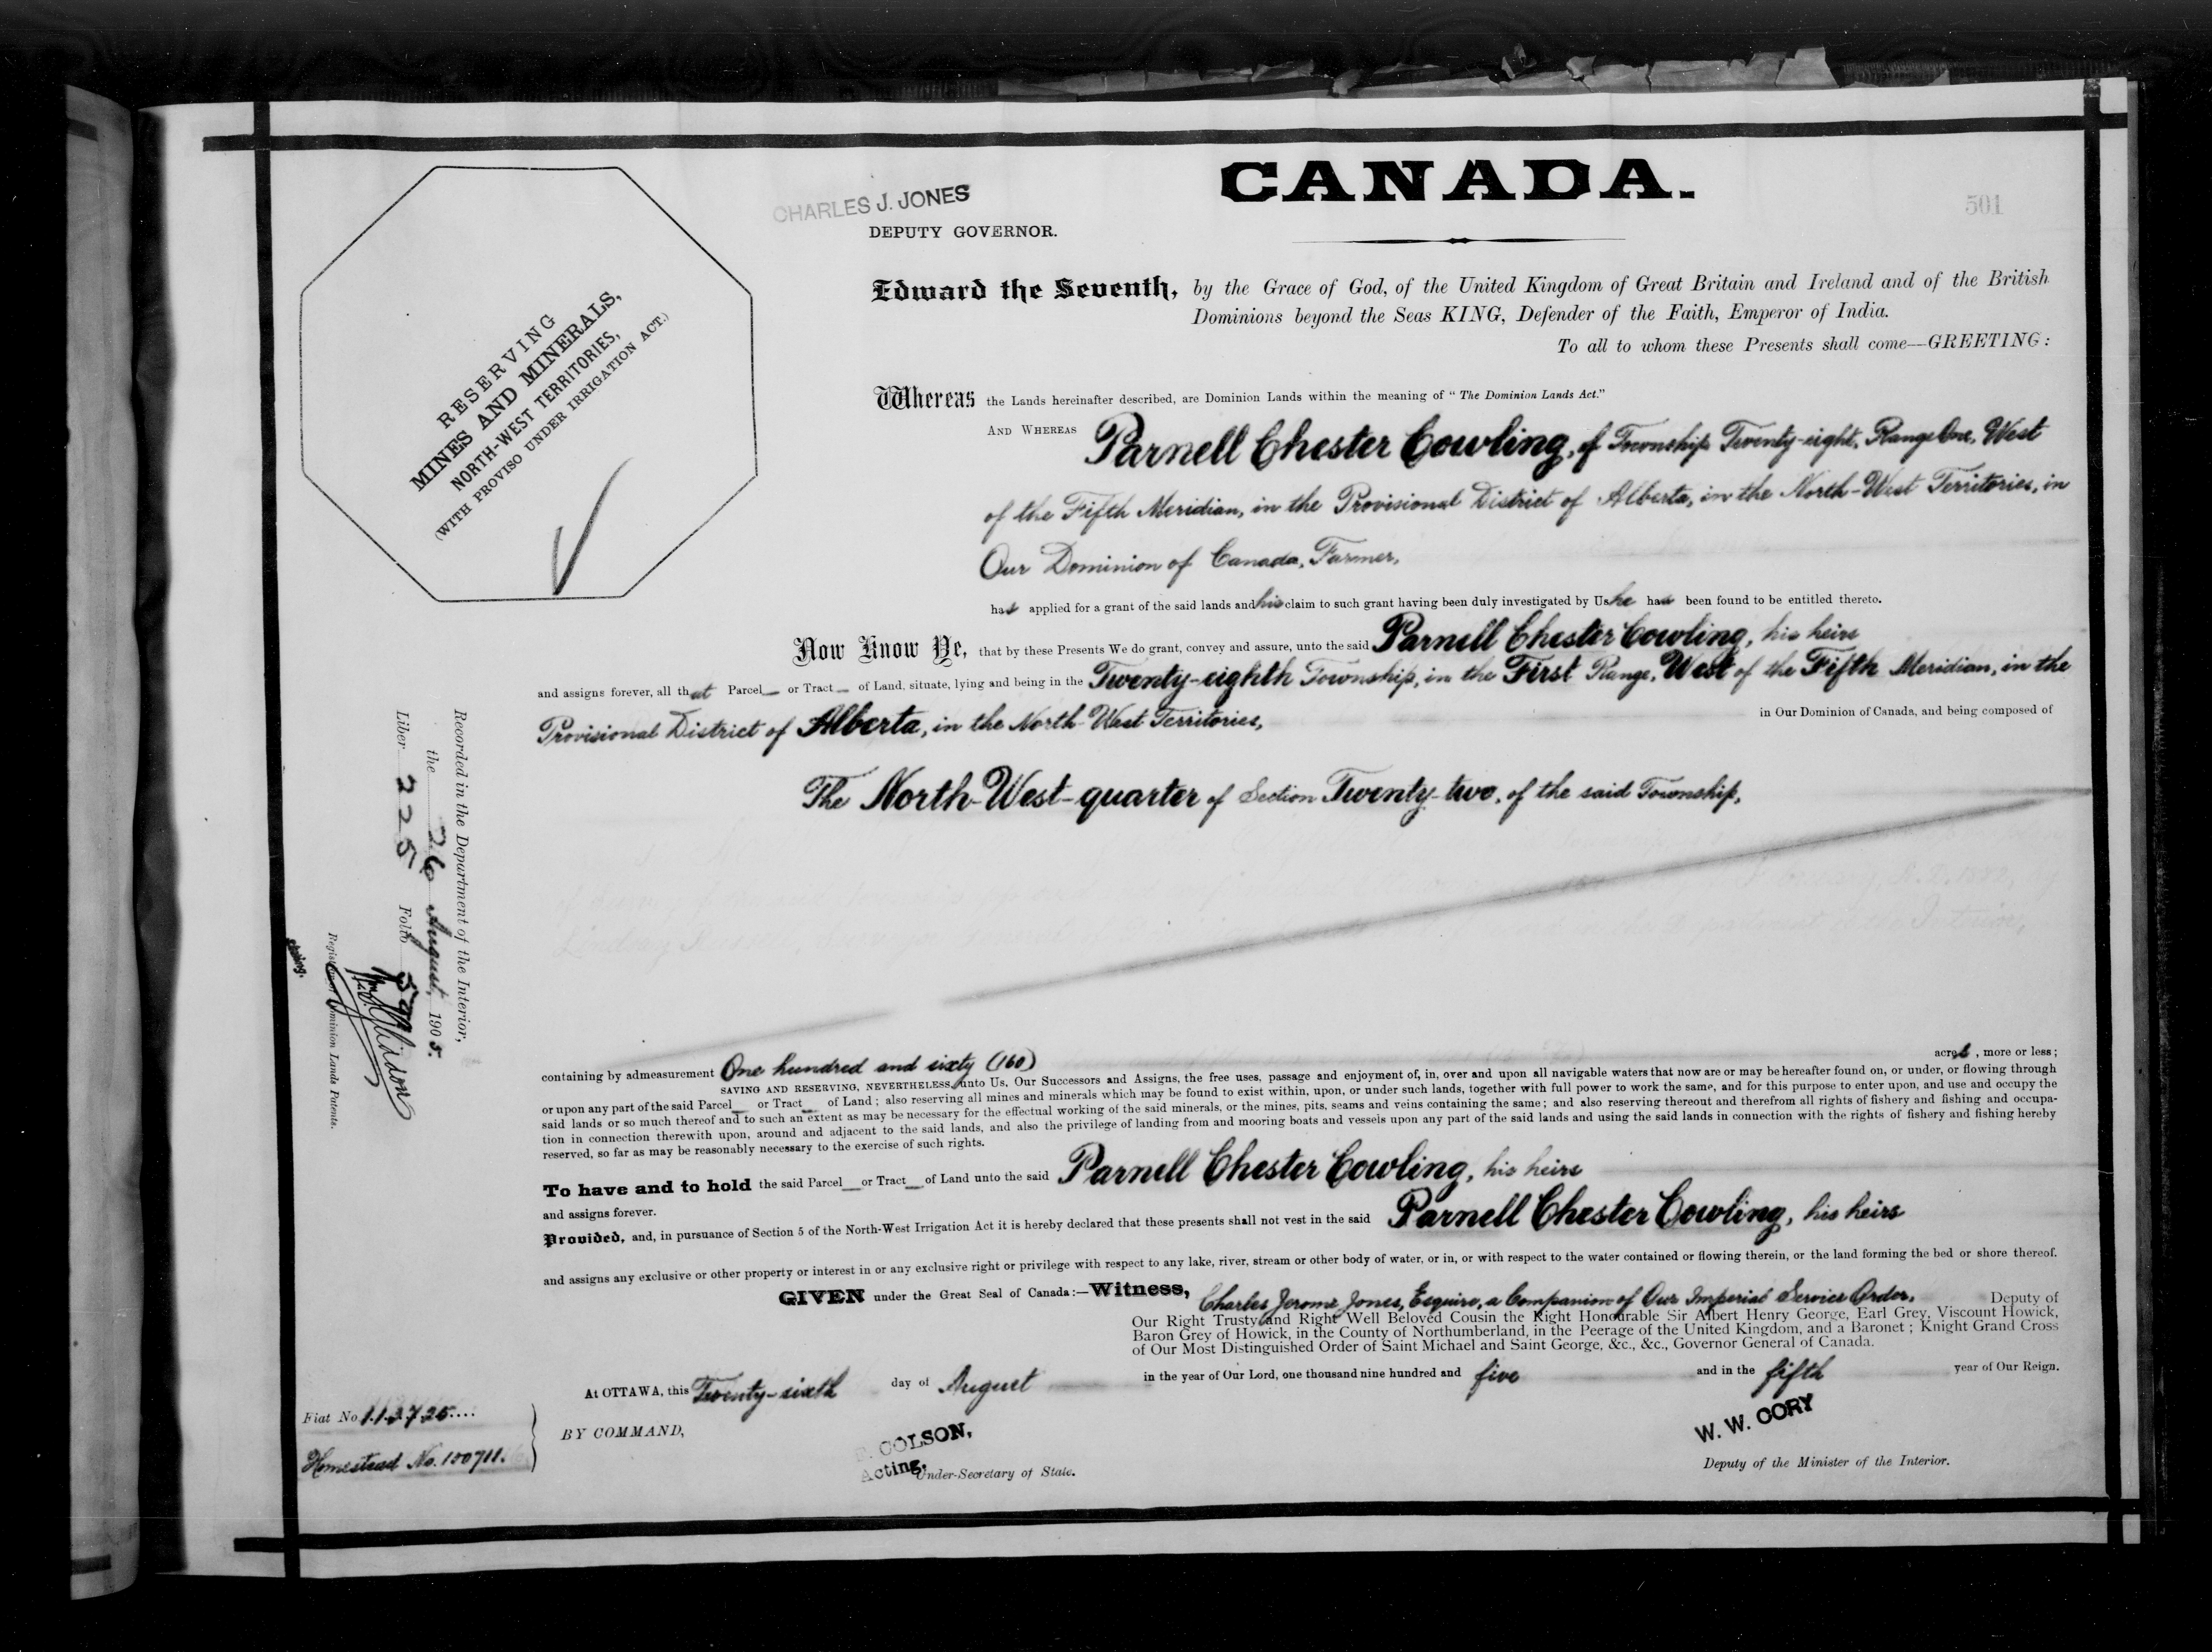 CANADA.
501
CHARLES J. JONES
DEPUTY GOVERNOR.
RESERVING
MINES AND MINERALS,
NORTH-WEST TERRITORIES,
(WITH PROVISO UNDER IRRIGATION ACT.)
Edward the Seventh, by the Grace of God, of the United Kingdom of Great Britain and Ireland and of the British
Dominions beyond the Seas KING, Defender of the Faith, Emperor of India.
To all to whom these Presents shall come—GREETING:
Whereas the Lands hereinafter described, are Dominion Lands within the meaning of "The Dominion Lands Act."
AND WHEREAS Parnell Chester Cowling, of Township Twenty-eight, Range One, West
of the Fifth Meridian, in the Provisional District of Alberta, in the North-West Territories, in
Our Dominion of Canada, Farmer,
has applied for a grant of the said lands and his claim to such grant having been duly investigated by Us he has been found to be entitled thereto.
Now Know Ye, that by these Presents We do grant, convey and assure, unto the said Parnell Chester Cowling, his heirs
and assigns forever, all that Parcel or Tract of Land, situate, lying and being in the Twenty-eighth Township, in the First Range, West of the Fifth Meridian, in the
Provisional District of Alberta, in the North-West Territories, in Our Dominion of Canada, and being composed of
The North-West-quarter of Section Twenty-two, of the said Township,
containing by admeasurement One hundred and sixty (160) acres, more or less;
SAVING AND RESERVING, NEVERTHELESS, unto Us, Our Successors and Assigns, the free uses, passage and enjoyment of, in, over and upon all navigable waters that now are or may be hereafter found on, or under, or flowing through
or upon any part of the said Parcel or Tract of Land; also reserving all mines and minerals which may be found to exist within, upon, or under such lands, together with full power to work the same, and for this purpose to enter upon, and use and occupy the
said lands or so much thereof and to such an extent as may be necessary for the effectual working of the said minerals, or the mines, pits, seams and veins containing the same; and also reserving thereout and therefrom all rights of fishery and fishing and occupa-
tion in connection therewith upon, around and adjacent to the said lands, and also the privilege of landing from and mooring boats and vessels upon any part of the said lands and using the said lands in connection with the rights of fishery and fishing hereby
reserved, so far as may be reasonably necessary to the exercise of such rights.
To have and to hold the said Parcel or Tract of Land unto the said Parnell Chester Cowling, his heirs
and assigns forever.
Provided, and, in pursuance of Section 5 of the North-West Irrigation Act it is hereby declared that these presents shall not vest in the said Parnell Chester Cowling, his heirs
and assigns any exclusive or other property or interest in or any exclusive right or privilege with respect to any lake, river, stream or other body of water, or in, or with respect to the water contained or flowing therein, or the land forming the bed or shore thereof.
GIVEN under the Great Seal of Canada:—Witness, Charles Jerome Jones, Esquire, a Companion of Our Imperial Service Order, Deputy of
Our Right Trusty and Right Well Beloved Cousin the Right Honourable Sir Albert Henry George, Earl Grey, Viscount Howick,
Baron Grey of Howick, in the County of Northumberland, in the Peerage of the United Kingdom, and a Baronet; Knight Grand Cross
of Our Most Distinguished Order of Saint Michael and Saint George, &c., &c., Governor General of Canada.
At OTTAWA, this Twenty-sixth day of August in the year of Our Lord, one thousand nine hundred and five and in the fifth year of Our Reign.
BY COMMAND,
COLSON,
Acting, Under-Secretary of State.
W. W. CORY
Deputy of the Minister of the Interior.
Fiat No. 112725
Homestead No. 100711.
Recorded in the Department of the Interior,
the 26 August, 1905.
Liber 225 Folio
Registrar of Dominion Lands Patents.